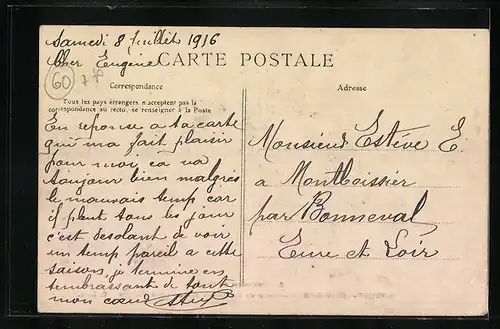 Samedi 8 Juillet 1916
Cher Eugène
CARTE POSTALE
60
Correspondance
Adresse
Tous les pays étrangers n'acceptent pas la
correspondance au recto, se renseigner à la Poste
En reponse a ta carte
qui ma fait plaisir
pour moi, ca va
toujour bien malgrès
le mauvais temp car
il pleut tous les jour
c'est desolant de voir
un temp pareil a cette
saison, je termine en
t'embrassant de tout
mon coeur
Monsieur Estève E.
a Montboissier
par Bonneval
Eure et Loir